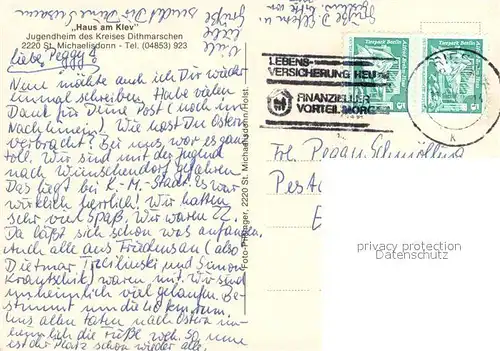 „Haus am Klev"
Jugendheim des Kreises Dithmarschen
2220 St. Michaelisdonn - Tel. (04853) 923
liebe Peggy!
Nun möchte auch ich Dir wieder
einmal schreiben. Habe vielen
Dank für Deine Post (noch im
Nachhinein). Wie hast Du Ostern
verbracht? Bei uns war es ganz
toll. Wir sind mit der Jugend
nach Wünschendorf gefahren
Das liegt bei K.-M.-Stadt. Es war
wirklich herrlich! Wir hatten
sehr viel Spaß. Wir waren 22.
Da läßt sich schon was anfangen.
Auch alle aus Friedensau (also
Dietmar und Simon
) waren mit. Wir sind
unheimlich viel gelaufen. Be-
stimmt um die 40 km rum.
Uns allen taten nach Ostern un-
heimlich die Füße weh. So, nun
ist der Platz schon wieder alle.
Viele
liebe
Grüße
sendet Dir Deine Susann
Foto-Pflueger, 2220 St. Michaelisdonn/Holst.
Tierpark Berlin
5
Tierpark Berlin
5
LEBENS-
VERSICHERUNG HEUTE
FINANZIELLER
VORTEIL MORGEN
Frl. Peggy
privacy protection
Verwendung